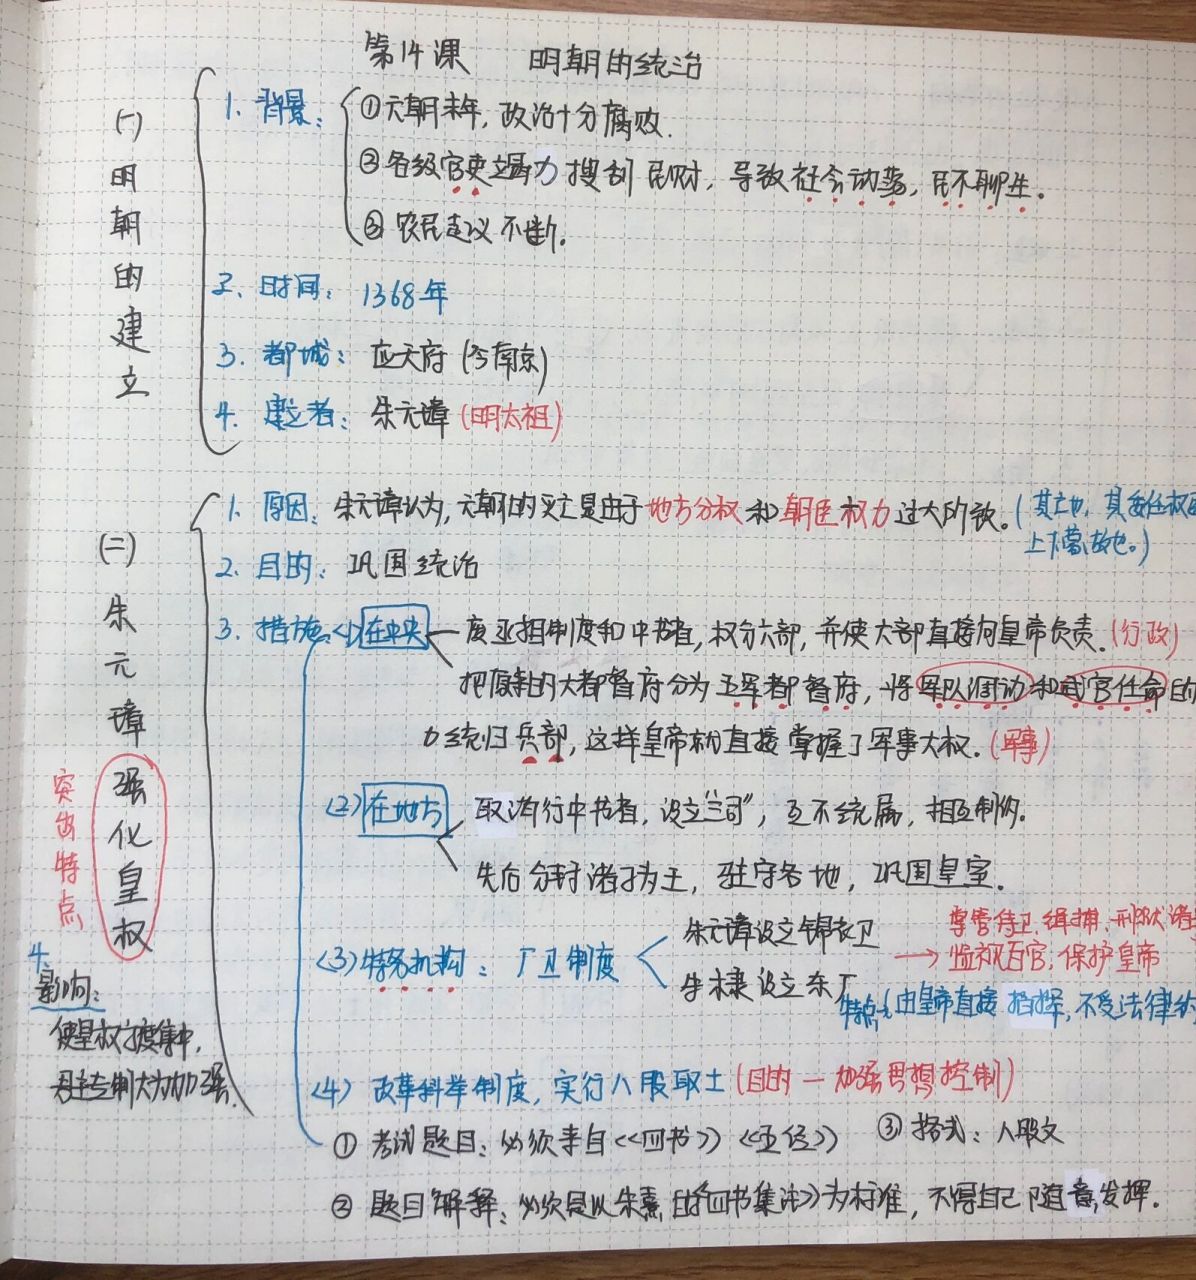 第14课 明朝的统治
(一)明朝的建立
1. 背景：
①元朝末年，政治十分腐败.
②各级官吏竭力搜刮民财，导致社会动荡，民不聊生。
③农民起义不断.
2. 时间：1368年
3. 都城：应天府(今南京)
4. 建立者：朱元璋(明太祖)
(二)朱元璋强化皇权
突出特点
1. 原因：朱元璋认为，元朝的灭亡是由于地方分权和朝臣权力过大所致。(其亡也，其委任权
上下蒙故也。)
2. 目的：巩固统治
3. 措施：(1)在中央
废丞相制度和中书省，权分六部，并使六部直接向皇帝负责.(行政)
把原来的大都督府分为五军都督府，将军队调动和武官任命的
力统归兵部，这样皇帝就直接掌握了军事大权.(军事)
(2)在地方
取消行中书省，设立"三司"，互不统属，相互制约.
先后分封诸子为王，驻守各地，巩固皇室.
(3)特务机构：厂卫制度
朱元璋设立锦衣卫
朱棣设立东厂
掌管侍卫、缉捕、刑狱诸
→监视百官，保护皇帝
特点：由皇帝直接指挥，不受法律约
(4) 改革科举制度，实行八股取士(目的—加强思想控制)
①考试题目：必须来自《四书》《五经》
③格式：八股文
②题目解释：必须是以朱熹的《四书集注》为标准，不得自己随意发挥.
4.
影响：
使皇权高度集中，
君主专制大为加强.